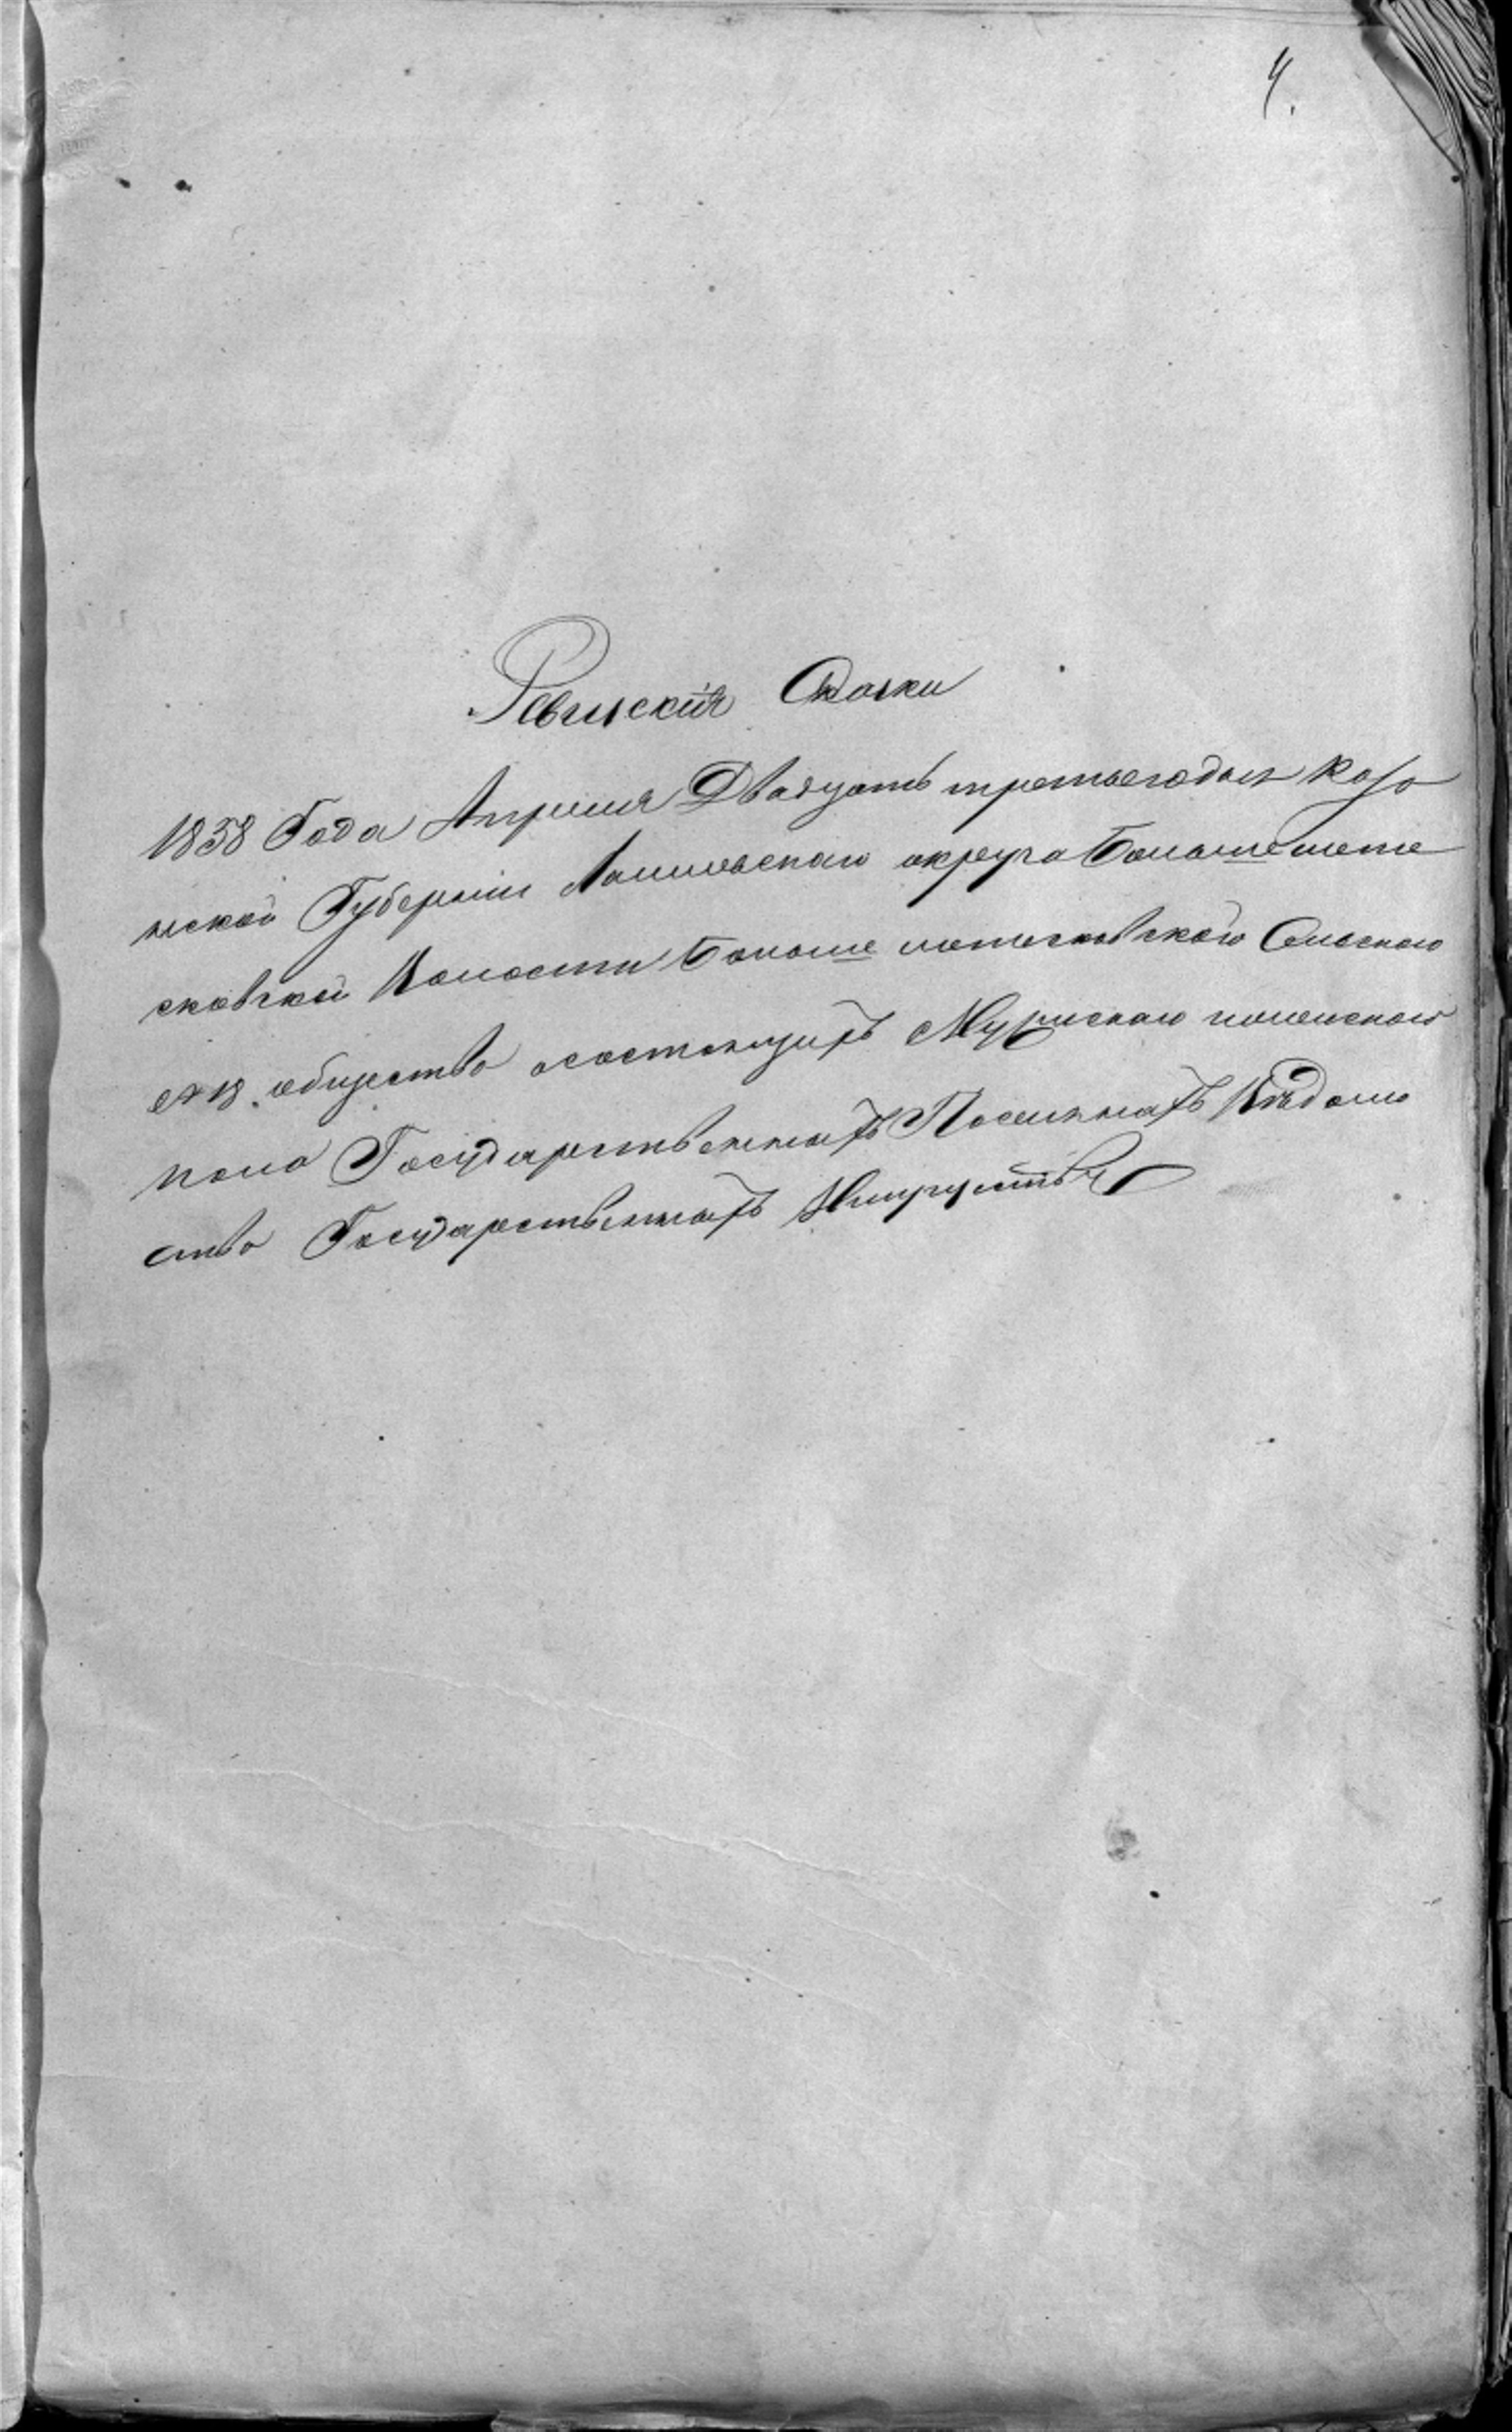 4.
Ревизскія Сказки
1858 Года Апреля Двадцать третьего дня Каза
нской Губерніи Лаишевскаго округа Больше мете
сковской Волости Больше метесковского Сельскаго
общества о состоящихъ Мужескаго и женскаго
пола Государственныхъ Поселянахъ Ведом
ства Государственныхъ Имуществъ